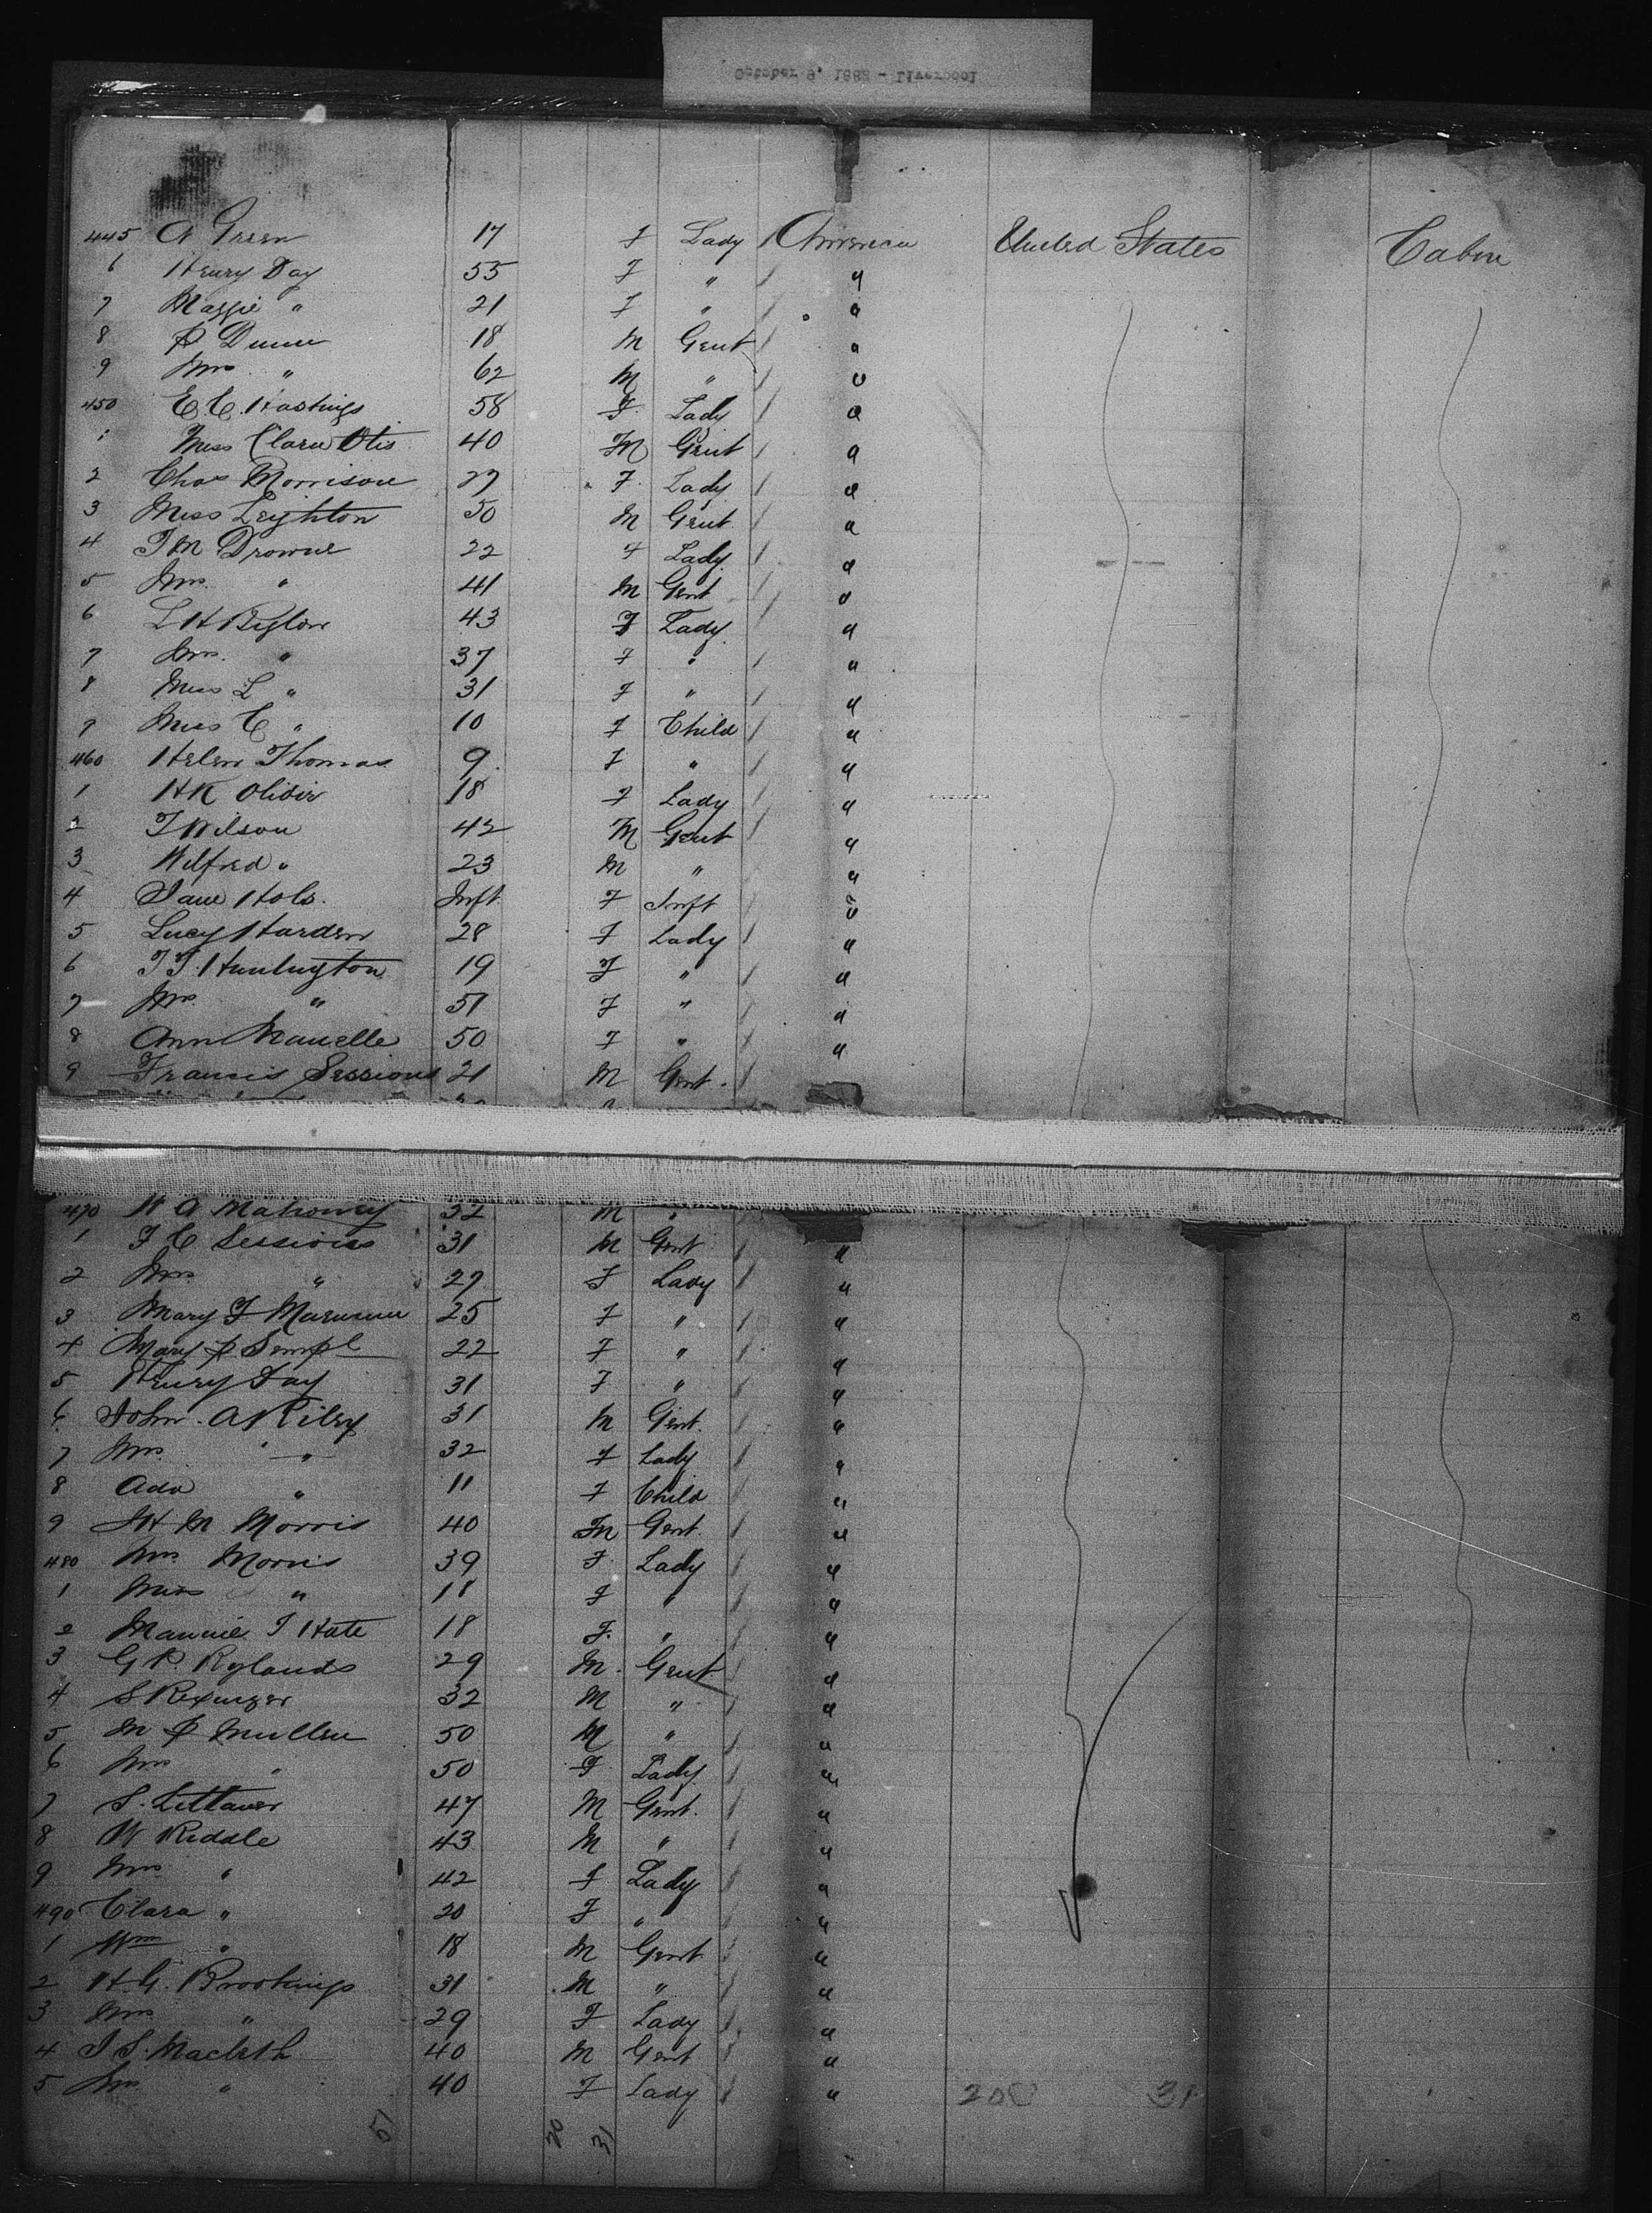 October 9, 1888 - Liverpool
445 A Green 17 F Lady / America United States Cabin
6 Henry Day 55 F " / "
7 Maggie " 21 F " / "
8 P Dunn 18 M Gent / "
9 Mrs " 62 M " / "
450 E. C. Hastings 58 F. Lady / "
1 Miss Clara Otis 40 M Gent / "
2 Chas Morrison 27 F. Lady / "
3 Miss Leighton 50 M Gent / "
4 T M Browne 22 F Lady / "
5 Mrs. " 41 M Gent / "
6 L H Biglow 43 F Lady / "
7 Mrs. " 37 F " / "
8 Miss L " 31 F " / "
9 Miss C " 10 F Child / "
460 Helen Thomas 9 F " / "
1 H K Olivir 18 F Lady / "
2 T Wilson 42 M Gent / "
3 Wilfred " 23 M " / "
4 Jane Hols. Inft F Inft / "
5 Lucy Harden 28 F Lady / "
6 T. T. Huntington 19 F " / "
7 Mrs. " 51 F " / "
8 Ann Manelle 50 F " / "
9 Francis Sessions 21 M Gent. /
470 W A Mahoney 32 M "
1 F C Sessions 31 M Gent / "
2 Mrs " 27 F Lady / "
3 Mary F 25 F " / "
4 Mary P Sempl 22 F " / "
5 Henry Fay 31 F " / "
6 John. A Riley 31 M Gent. / "
7 Mrs. " 32 F Lady / "
8 Ada " 11 F Child / "
9 M Morris 40 M Gent. / "
480 Mrs. Morris 39 F. Lady / "
1 Miss " 18 F " / "
2 Mannie T Hate 18 F. " / "
3 G P. Rylands 29 M. Gent / "
4 S 32 M " / "
5 M P Mullen 50 M " / "
6 Mrs " 50 F Lady. / "
7 S. Littauer 47 M Gent. / "
8 W Riddle 43 M " / "
9 Mrs " 42 F Lady / "
490 Clara " 20 F " / "
1 Wm " 18 M Gent / "
2 H. G. Brookings 31 M " / "
3 Mrs " 29 F Lady / "
4 J S. Macbeth 40 M Gent / "
5 Mrs " 40 F Lady / "
200 31
51 20 31